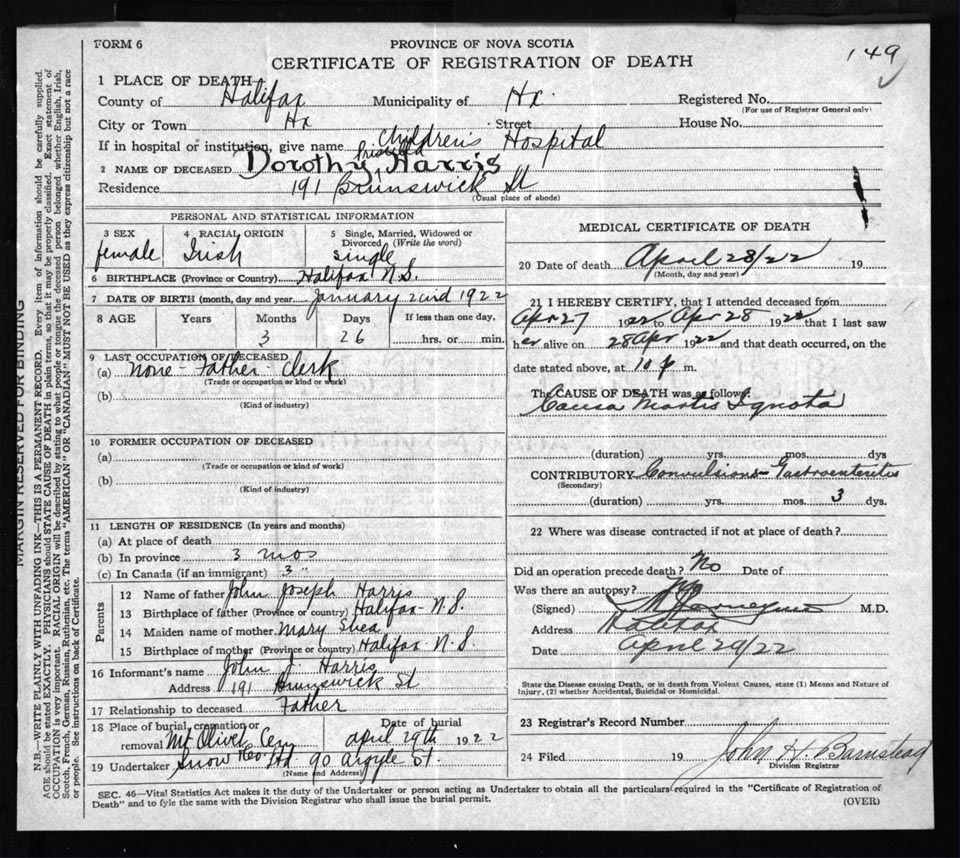 FORM 6
PROVINCE OF NOVA SCOTIA
149
CERTIFICATE OF REGISTRATION OF DEATH
1 PLACE OF DEATH
County of Halifax Municipality of Hx. Registered No.
(For use of Registrar General only)
City or Town Hx Street House No.
If in hospital or institution, give name Children's Hospital
2 NAME OF DECEASED Dorothy Priscilla Harris
Residence 191 Brunswick St
(Usual place of abode)
PERSONAL AND STATISTICAL INFORMATION
3 SEX 4 RACIAL ORIGIN 5 Single, Married, Widowed or Divorced (Write the word)
female Irish single
6 BIRTHPLACE (Province or Country) Halifax N.S.
7 DATE OF BIRTH (month, day and year January 22nd 1922
8 AGE Years Months Days If less than one day,
3 26 hrs. or min.
9 LAST OCCUPATION OF DECEASED
(a) None - Father - Clerk
(Trade or occupation or kind or work)
(b)
(Kind of industry)
10 FORMER OCCUPATION OF DECEASED
(a)
(Trade or occupation or kind of work)
(b)
(Kind of industry)
11 LENGTH OF RESIDENCE (In years and months)
(a) At place of death
(b) In province 3 mos
(c) In Canada (if an immigrant) 3 "
Parents
12 Name of father John Joseph Harris
13 Birthplace of father (Province or country) Halifax N.S.
14 Maiden name of mother Mary Shea
15 Birthplace of mother (Province or country) Halifax N.S
16 Informant's name John J. Harris
Address 191 Brunswick St
17 Relationship to deceased Father
18 Place of burial, cremation or removal Mt Olivet Cem Date of burial april 29th 1922
19 Undertaker Snow & Co. Ltd. 90 Argyle St.
(Name and Address)
MEDICAL CERTIFICATE OF DEATH
20 Date of death April 28/22 19
(Month, day and year)
21 I HEREBY CERTIFY, that I attended deceased from
Apr 27 1922 to Apr 28 1922 that I last saw
her alive on 28 Apr 1922 and that death occurred, on the
date stated above, at 10 p m.
The CAUSE OF DEATH was as follows:
Causa Mortis Ignota
(duration) yrs. mos. dys
CONTRIBUTORY Convulsions - Gastroenteritis
(Secondary)
(duration) yrs. mos. 3 dys.
22 Where was disease contracted if not at place of death?
Did an operation precede death? No Date of
Was there an autopsy? No
(Signed) M.D.
Address Halifax
Date April 29/22
State the Disease causing Death, or in death from Violent Causes, state (1) Means and Nature of
Injury, (2) whether Accidental, Suicidal or Homicidal.
23 Registrar's Record Number
24 Filed 19 John H. Barnstead
Division Registrar
SEC. 46—Vital Statistics Act makes it the duty of the Undertaker or person acting as Undertaker to obtain all the particulars required in the "Certificate of Registration of
Death" and to fyle the same with the Division Registrar who shall issue the burial permit.
(OVER)
MARGIN RESERVED FOR BINDING
N.B.—WRITE PLAINLY WITH UNFADING INK—THIS IS A PERMANENT RECORD. Every item of information should be carefully supplied.
AGE should be stated EXACTLY. PHYSICIANS should STATE CAUSE OF DEATH in plain terms, so that it may be properly classified. Exact statement of
OCCUPATION is very important. RACIAL ORIGIN will be described by stating to what people or tongue the deceased person belonged whether English, Irish,
Scotch, French, German, Russian, Ruthenian, etc. The terms "AMERICAN" OR "CANADIAN" MUST NOT BE USED as they express citizenship but not a race
or people. See instructions on back of Certificate.